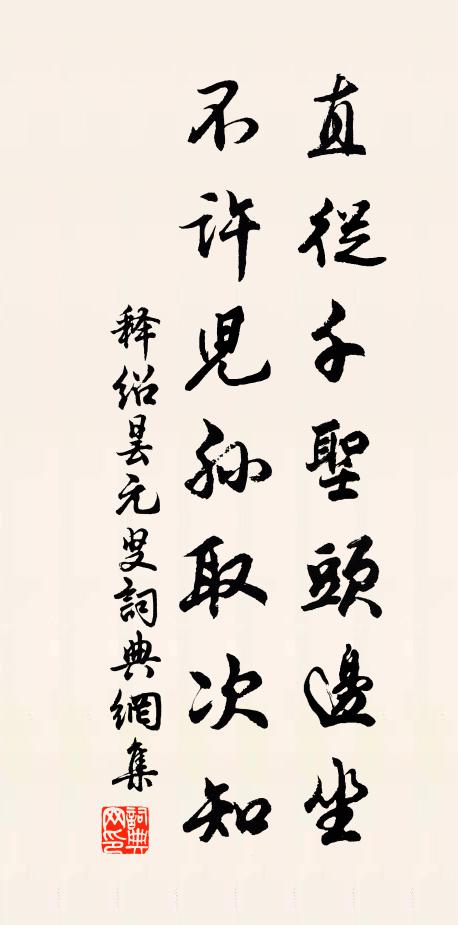 直從千聖頭邊坐
不許兒孫取次知
釋紹曇元叟詞典網集
詞典網印